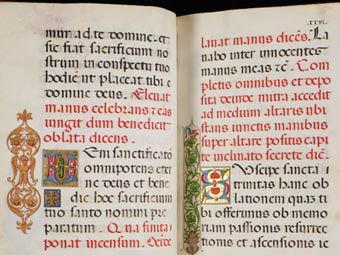 num ad te domine: et
sic fiat sacrificium no
strum in conspectu tuo
hodie ut placeat tibi
domine deus. Eleuat
manus celebrans et eas
iungit dum benedicit
oblata dicens.
Veni sanctificator
omnipotens eter
ne deus et bene
dic hoc sacrificiū
tuo sancto nomini pre
paratum. Qua finita
ponat incensum. Deīde
xxvi.
lauat manus dicēs. La
uabo inter innocentes
manus meas etc̄.
Completis omnibus et depo
sita deinde mitra accedit
ad medium altaris ubi
iunctis manibus
super altare positis capi
te inclinato secrete dic̄.
Suscipe sancta
trinitas hanc ob
lationem quā ti
bi offerimus ob memo
riam passionis resurre
ctionis et ascensionis ie